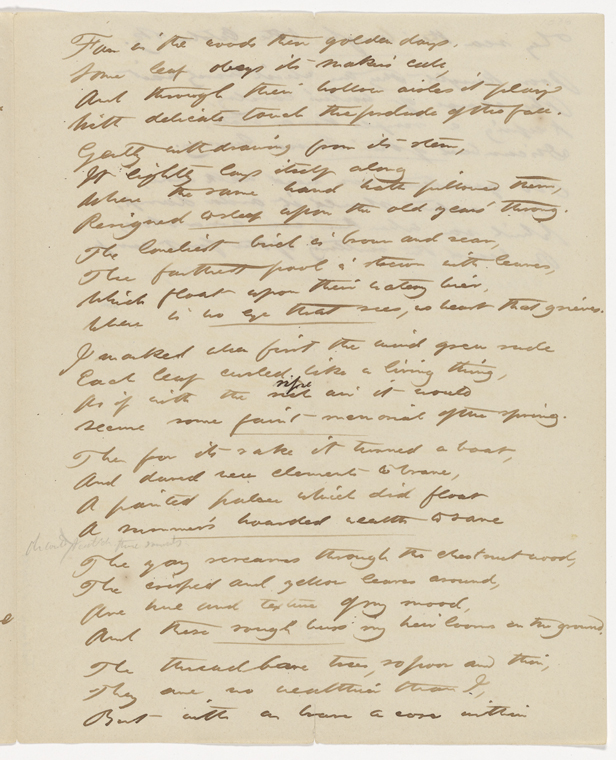 Far in the woods these golden days.
Some leaf obeys its maker's call,
And through their hollow aisles it plays
With delicate touch the prelude of the fall.
Gently withdrawing from its stem,
It lightly lays itself along
Where the same hand hath pillowed them,
Resigned to sleep upon the old years' throng.
The loneliest birch is brown and sear,
The farthest pool is strewn with leaves,
Which float upon their watery bier,
Where is no eye that sees, no heart that grieves.
I marked when first the wind grew rude
Each leaf curled like a living thing,
ripe
As if with the air it would
Secure some faint memorial of the spring.
Then for its sake it turned a boat,
And dared new elements to brave,
A painted palace which did float
A summer's hoarded wealth to save
The jay screams through the chestnut wood,
The crisped and yellow leaves around,
Are hue and texture of my mood,
And these rough burs my heirlooms on the ground.
The threadbare trees, so poor and thin,
They are no wealthier than I,
But with as brave a core within